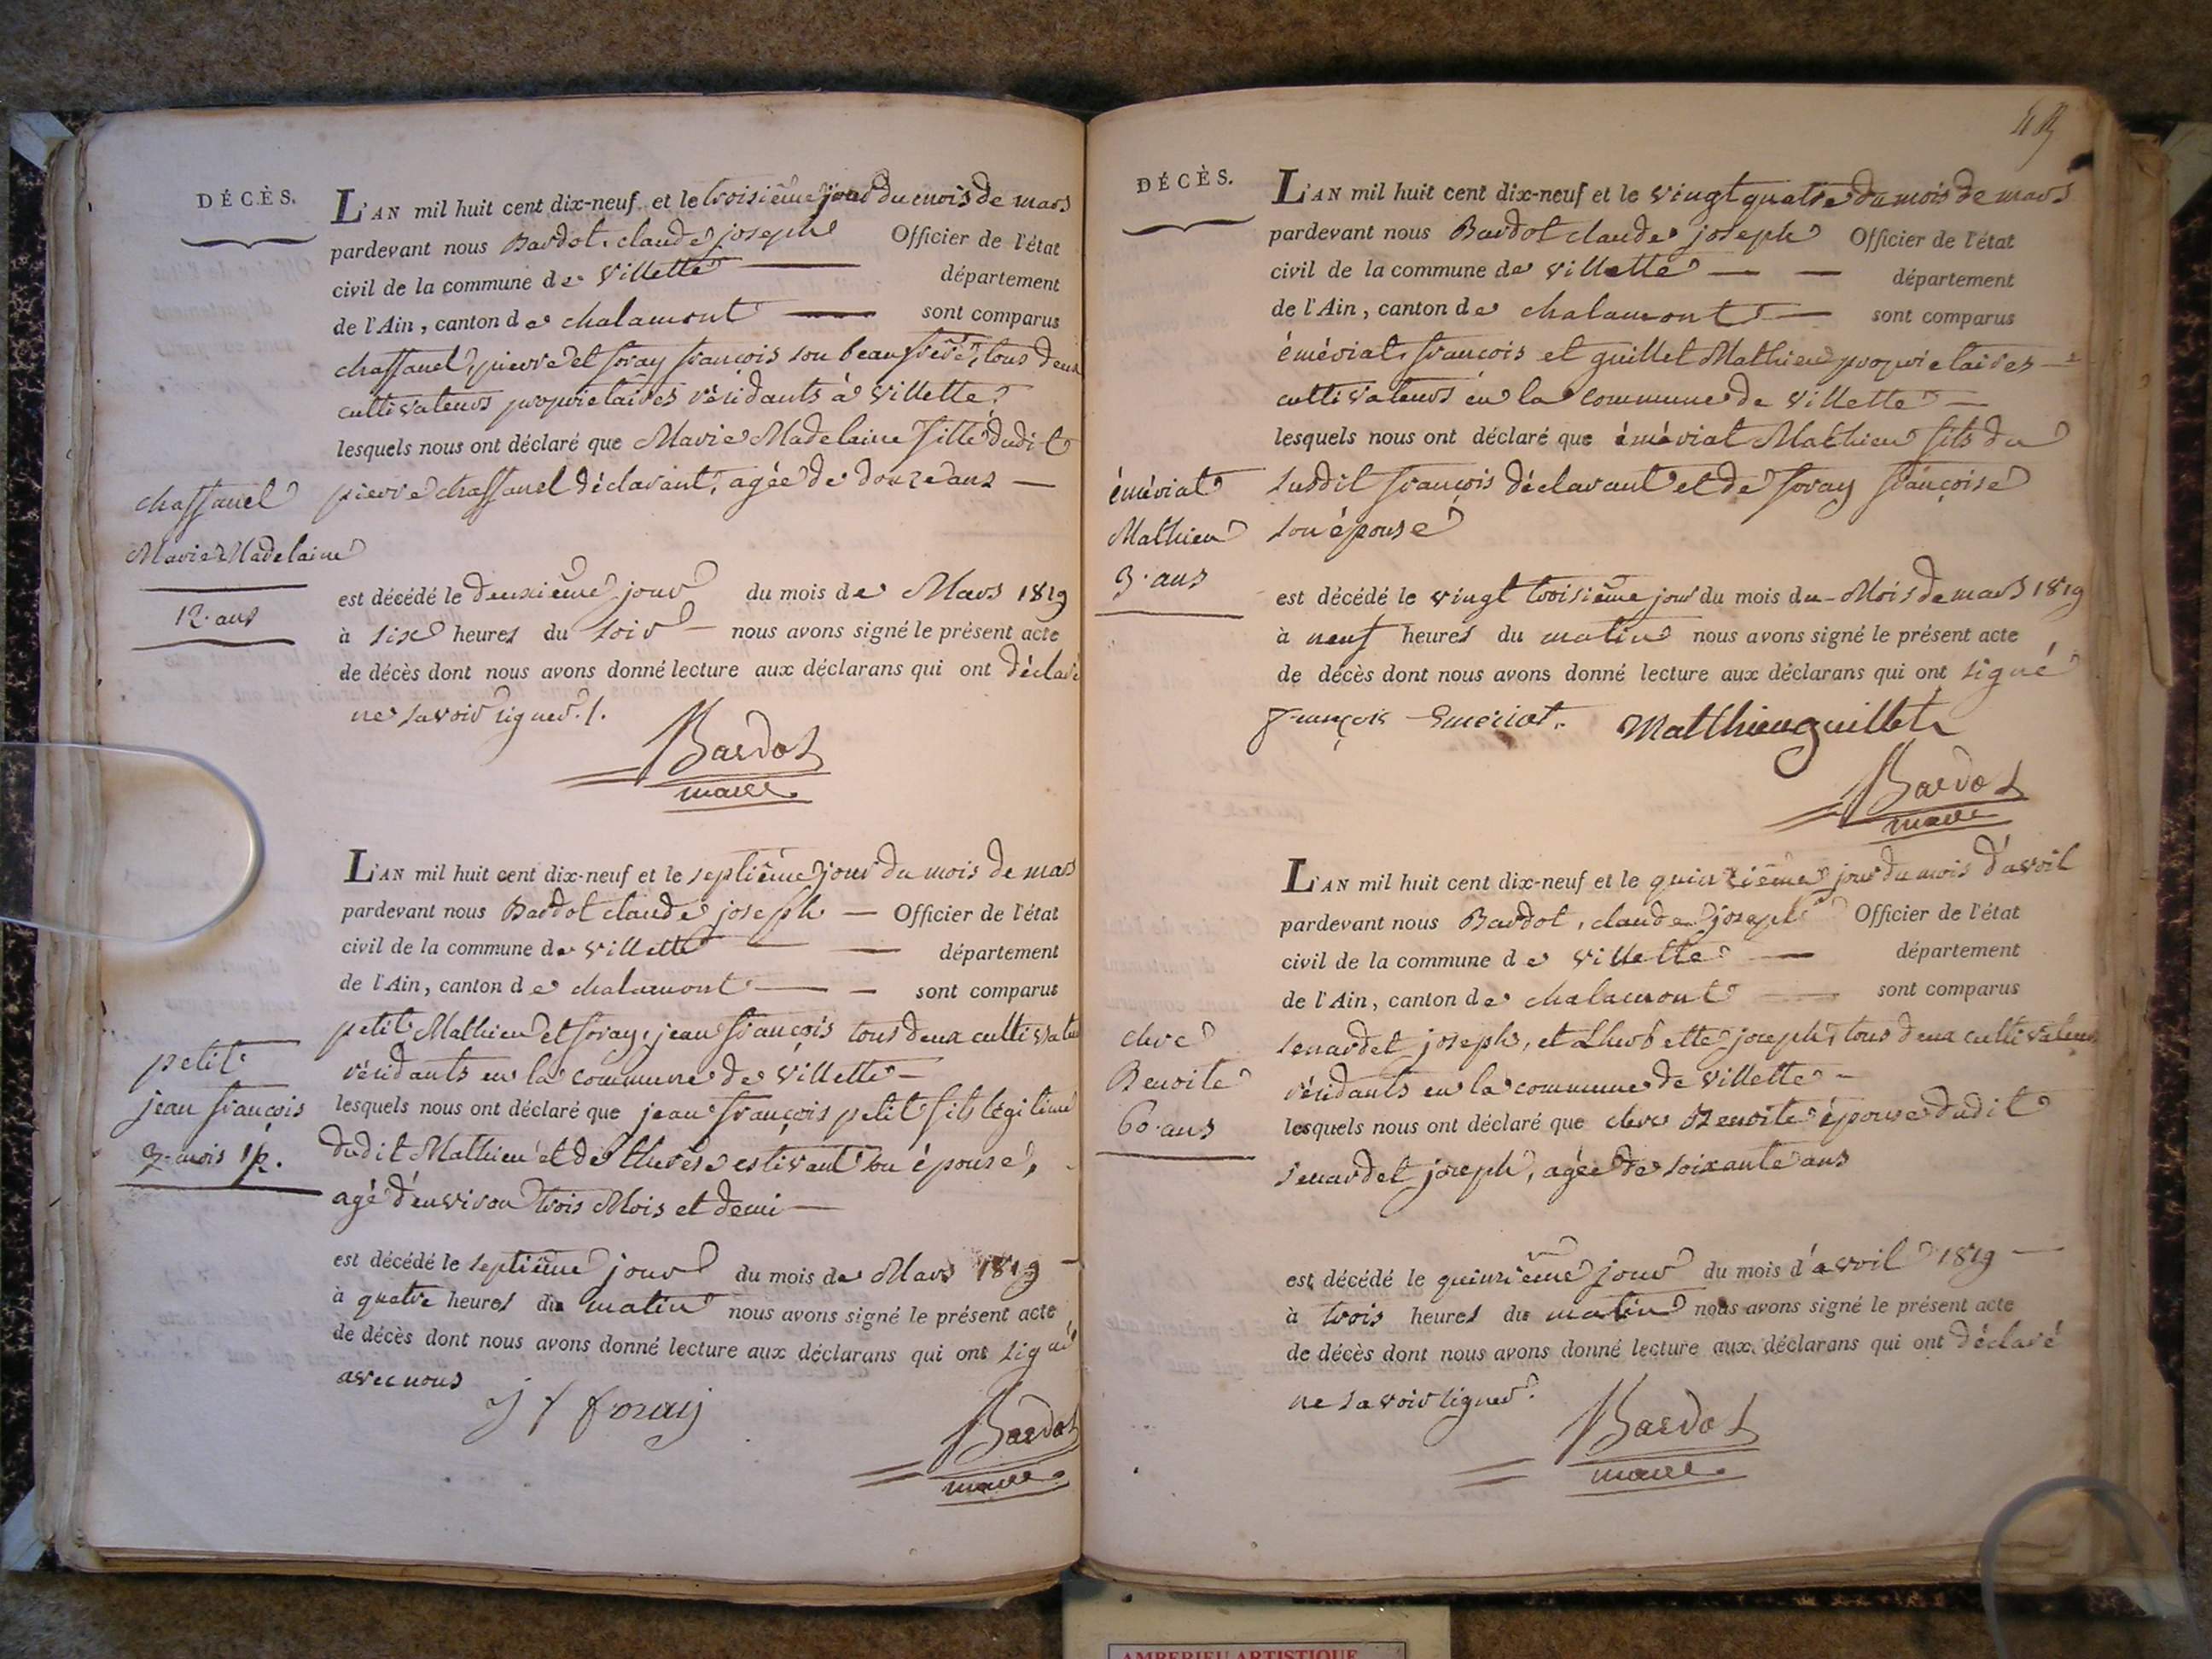 DÉCÈS.
L'AN mil huit cent dix-neuf et le troisième jour du mois de mars
pardevant nous Bardot, claude joseph Officier de l'état
civil de la commune de Villette département
de l'Ain, canton de chalamont sont comparus
chassanel, pierre et foray françois son beau frère, tous deux
cultivateurs propriétaires résidants à Villette,
lesquels nous ont déclaré que Marie Madelaine fille dudit
pierre chassanel déclarant, agée de douze ans
chassanel
Marie Madelaine
12. ans
est décédé le deuxième jour du mois de Mars 1819
à six heures du soir nous avons signé le présent acte
de décès dont nous avons donné lecture aux déclarans qui ont déclaré
ne savoir signer./.
Bardot
maire
L'AN mil huit cent dix-neuf et le septième jour du mois de mars
pardevant nous Bardot claude joseph Officier de l'état
civil de la commune de Villette département
de l'Ain, canton de chalamont sont comparus
petit Mathieu et foray, jean françois tous deux cultivateurs
résidants en la commune de Villette
lesquels nous ont déclaré que jean françois petit fils légitime
dudit Mathieu et de therèse estivant son épouse,
agé d'environ trois Mois et demi
petit
jean françois
3. mois 1/2.
est décédé le septième jour du mois de Mars 1819
à quatre heures du matin nous avons signé le présent acte
de décès dont nous avons donné lecture aux déclarans qui ont signé
avec nous
j f foray
Bardot
maire
DÉCÈS.
L'AN mil huit cent dix-neuf et le vingt quatre du mois de mars
pardevant nous Bardot claude joseph Officier de l'état
civil de la commune de Villette département
de l'Ain, canton de chalamont sont comparus
émériat, françois et guillet Mathieu propriétaires
cultivateurs en la commune de Villette
lesquels nous ont déclaré que émériat Mathieu fils du
susdit françois déclarant et de foray françoise
son épouse
émériat
Mathieu
3. ans
est décédé le vingt troisième jour du mois du Mois de mars 1819
à neuf heures du matin nous avons signé le présent acte
de décès dont nous avons donné lecture aux déclarans qui ont signé
françois Emeriat. Matthieu guillet
Bardot
maire
L'AN mil huit cent dix-neuf et le quinzième jour du mois d'avril
pardevant nous Bardot, claude joseph Officier de l'état
civil de la commune de Villette département
de l'Ain, canton de chalamont sont comparus
senardet joseph, et Lherbette joseph, tous deux cultivateurs
résidants en la commune de Villette
lesquels nous ont déclaré que clerc Benoite épouse dudit
senardet joseph, agée de soixante ans
clerc
Benoite
60. ans
est décédé le quinzième jour du mois d'avril 1819
à trois heures du matin nous avons signé le présent acte
de décès dont nous avons donné lecture aux déclarans qui ont déclaré
ne savoir signer.
Bardot
maire
AMBERIEU ARTISTIQUE